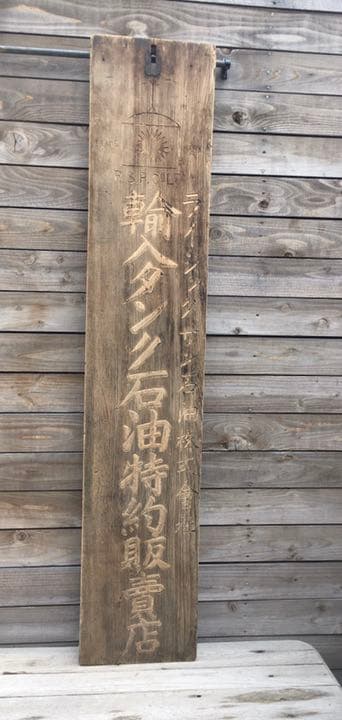 ライジングサン石油株式會社
輸入タンク石油特約販賣店